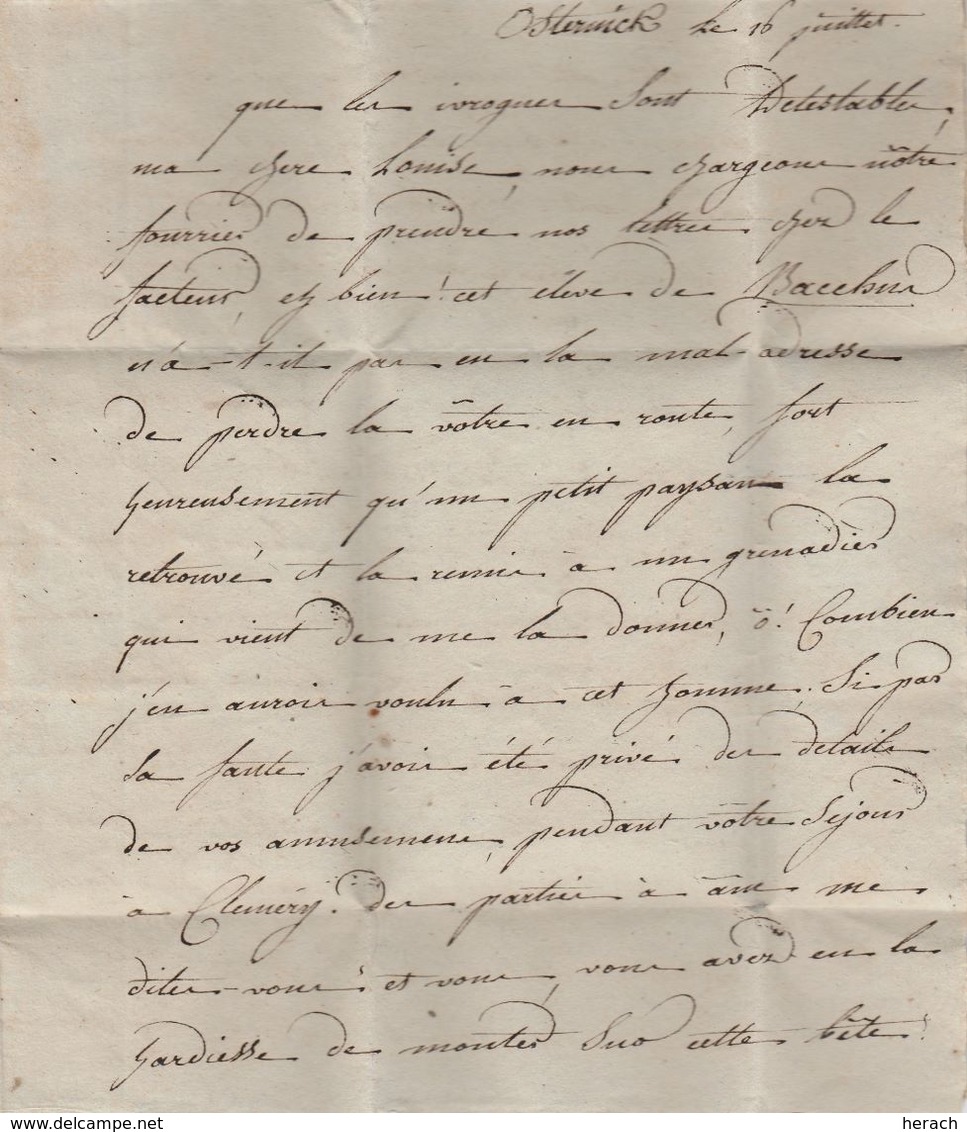 Osterwick le 16 juillet.
que les ivrognes sont détestables,
ma chere Louise, nous chargeons nôtre
fourrier de prendre nos lettres chez le
facteur, eh bien! cet élève de Bacchus
n'a-t-il pas eu la mal-adresse
de perdre la vôtre en route, fort
heureusement qu'un petit paysan la
retrouvé et la remis à un grenadier
qui vient de me la donner, ô! Combien
j'en aurois voulu à cet homme. Si par
sa faute j'avois été privé des details
de vos amusemens, pendant vôtre Séjour
à Clemery. des parties à âne me
dites-vous! et vous, vous avez eu la
hardiesse de monter sur cette bête!
www.delcampe.net
herach